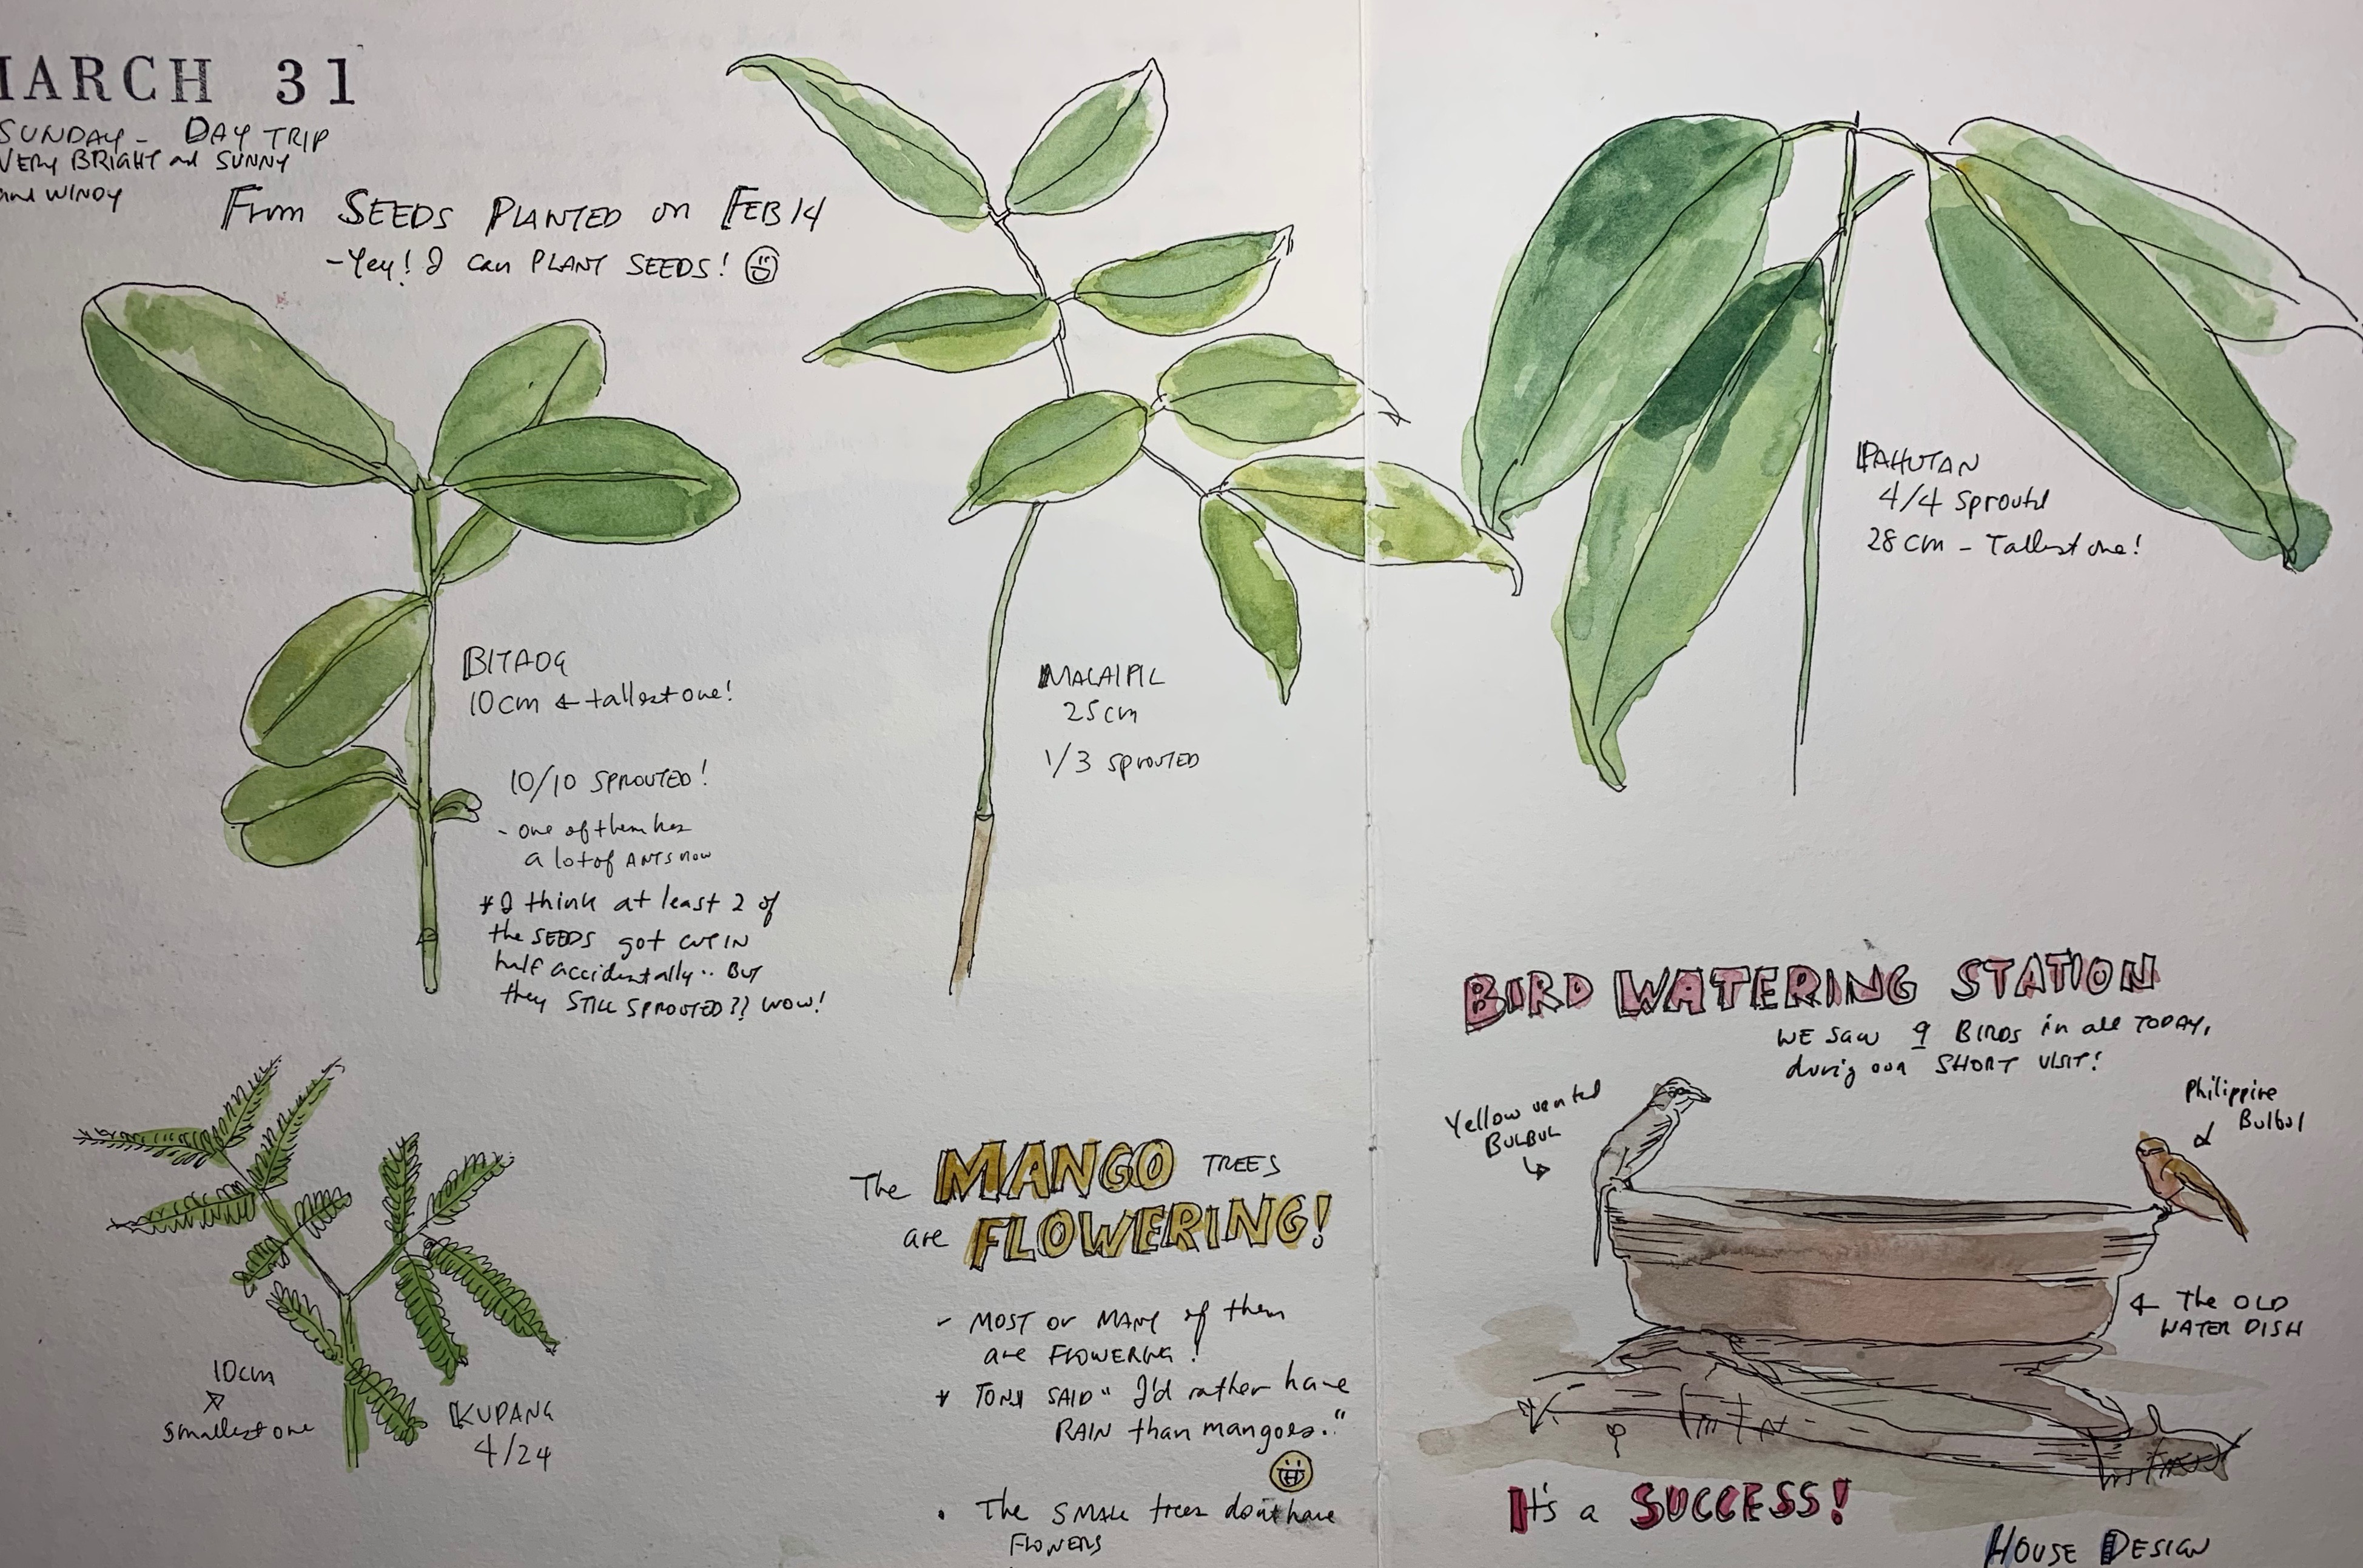 MARCH 31
SUNDAY - DAY TRIP
VERY BRIGHT and SUNNY
and WINDY
From SEEDS PLANTED on FEB 14
- Yey! I can PLANT SEEDS!
BITAOG
10cm ← tallest one!
10/10 SPROUTED!
- one of them has
a lot of ANTS now
* I think at least 2 of
the SEEDS got cut IN
half accidentally.. BUT
they STILL SPROUTED?? WOW!
MALAIPIL
25cm
1/3 sprouted
PAHUTAN
4/4 sprouted
28 cm - Tallest one!
10cm
smallest one
KUPANG
4/24
The MANGO TREES
are FLOWERING!
- MOST or MANY of them
are FLOWERING!
* TONY SAID "I'd rather have
RAIN than mangoes."
• The SMALL trees don't have
FLOWERS
BIRD WATERING STATION
WE SAW 9 BIRDS in all TODAY,
during our SHORT VISIT!
Yellow vented
BULBUL
Philippine
Bulbul
← The OLD
WATER DISH
It's a SUCCESS!
HOUSE DESIGN